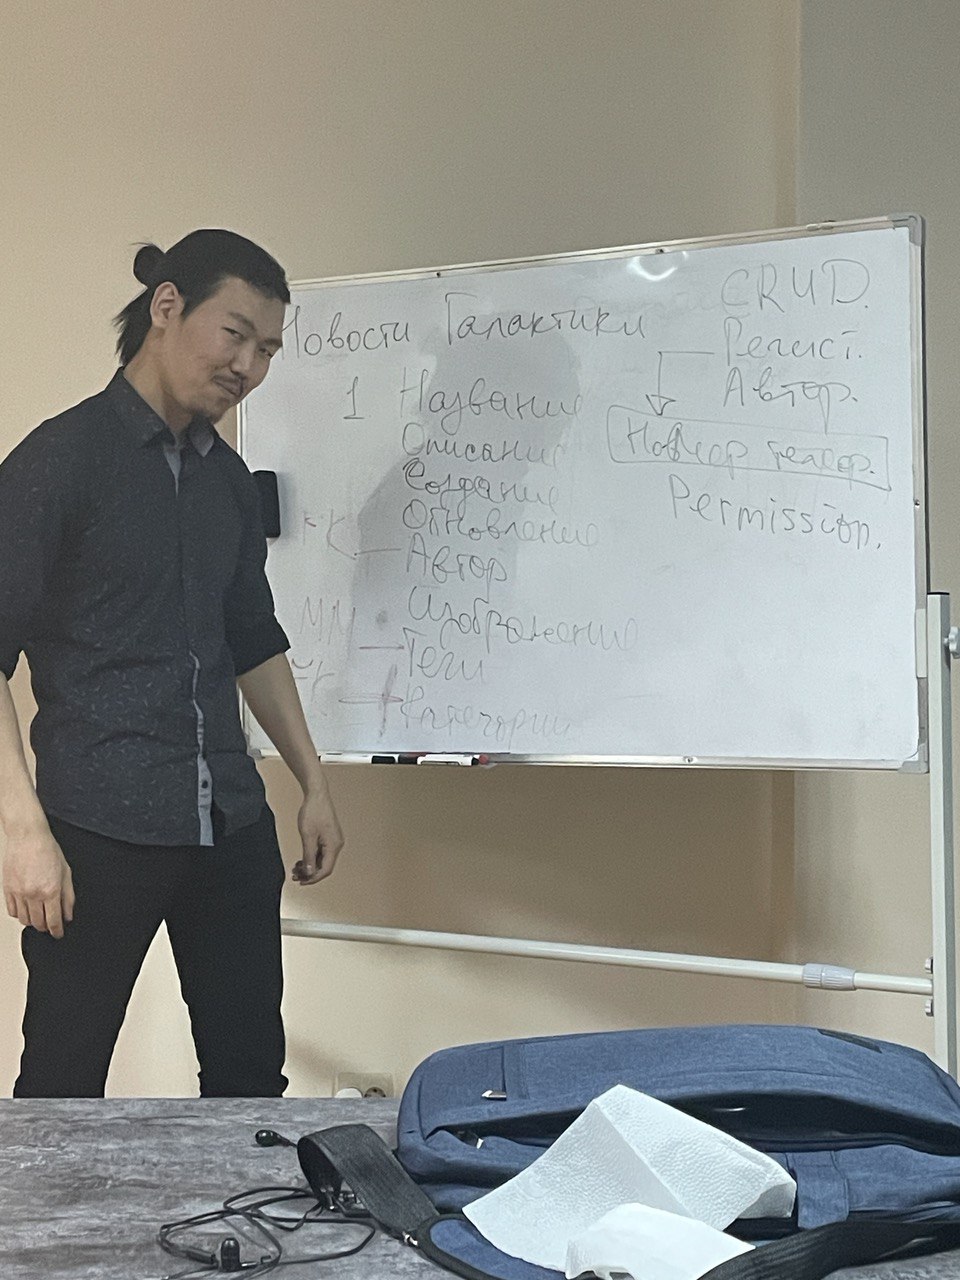 Новости Галактики
1 Название
Описание
Создание
Обновление
Автор
Изображение
MM Теги
FK Категории
CRUD.
Регист.
Автор.
Permission.